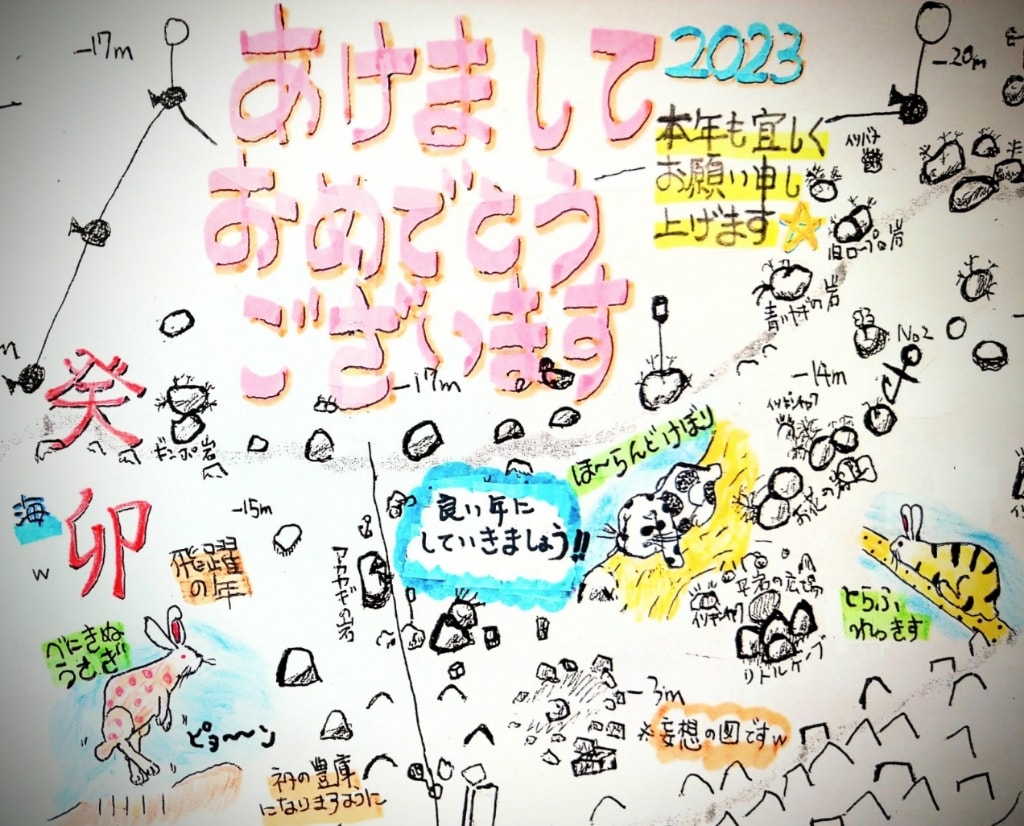 あけまして
おめでとう
ございます
2023
本年も宜しく
お願い申し
上げます
-17m
-20m
イリバナ
旧ロープの岩
青いヤギの岩
No2
-14m
-17m
癸
卯
ギンポ岩
海
w
-15m
飛躍
の年
アカヤギの岩
良い年に
していきましょう!!
ほ〜らんどけばり
お花の岩
平岩の広場
リトルケーブ
とらふ
れっきす
べにきぬ
うさぎ
ピョ〜〜ン
ネタの豊庫
になりますように
-3m
※妄想の図ですw